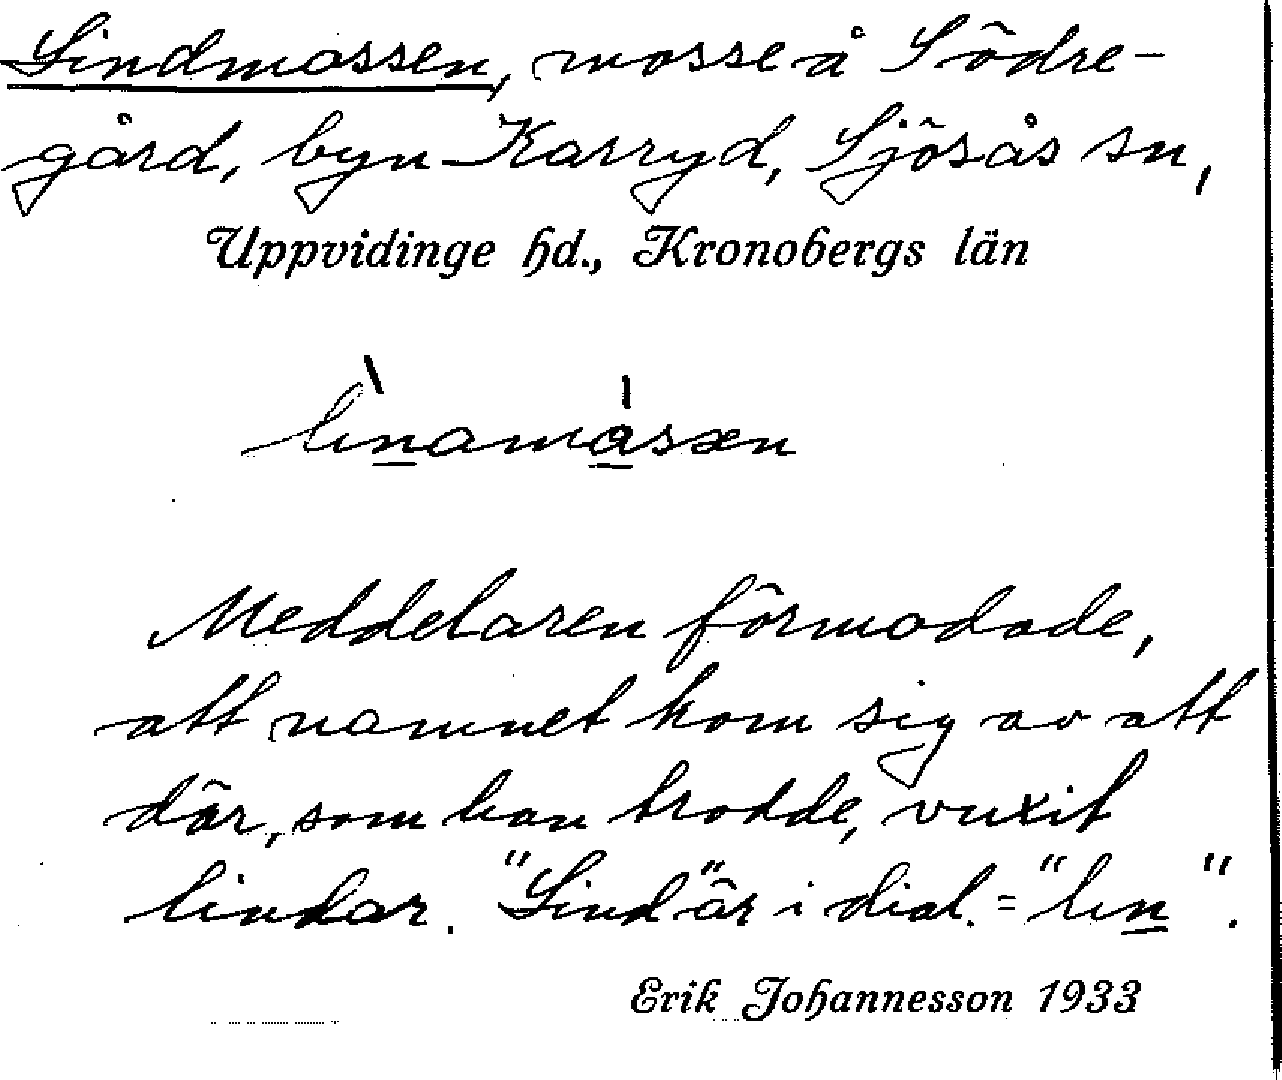 Lindmossen, mosse å Södre-
gård, byn Karryd, Sjösås sn,
Uppvidinge hd., Kronobergs län
linamåsæn
Meddelaren förmodade,
att namnet kom sig av att
där, som han trodde, vuxit
lindar. "Lind" är i dial. = "lin".
Erik Johannesson 1933